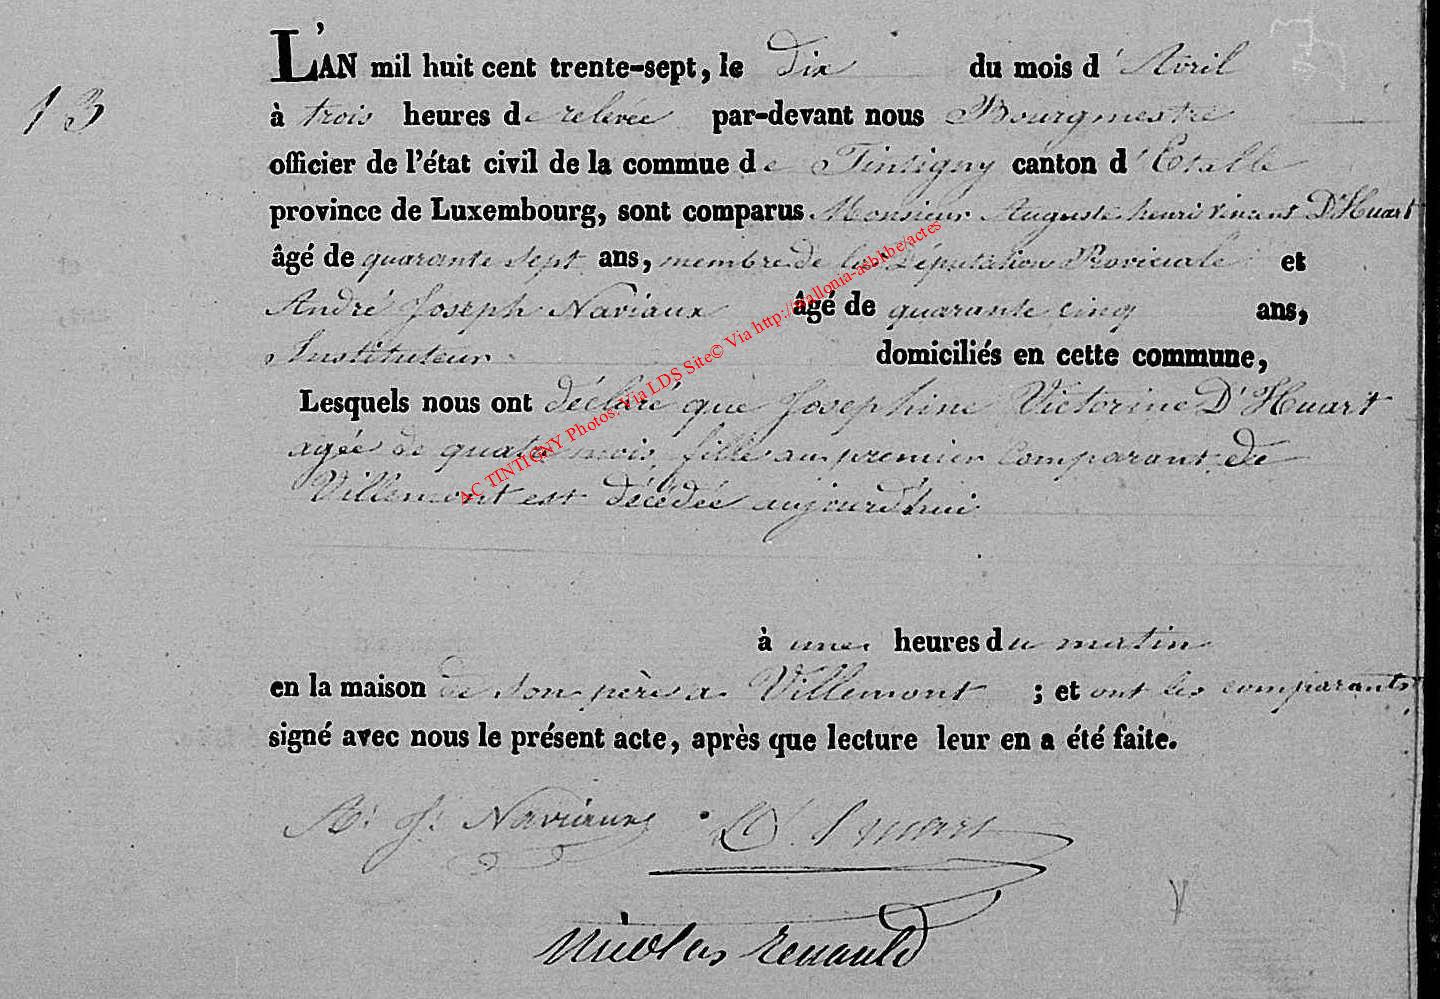 L'AN mil huit cent trente-sept, le dix du mois d'Avril
13
à trois heures de relevée par-devant nous Bourgmestre
officier de l'état civil de la commue de Tintigny canton d'Etalle
province de Luxembourg, sont comparus Monsieur Auguste henri vincent D'Huart
âgé de quarante sept ans, membre de la Députation Provinciale et
André Joseph Naviaux âgé de quarante cinq ans,
Instituteur domiciliés en cette commune,
Lesquels nous ont déclaré que Josephine Victorine D'Huart
agée de quatre mois, fille au premier Comparant, de
Villemont est décédée aujourd'hui
à une heures du matin
en la maison de son père a Villemont ; et ont les comparants
signé avec nous le présent acte, après que lecture leur en a été faite.
A. J. Naviaux D'Huart
Nicolas Renauld
AC TINTIGNY Photos Via LDS Site© Via http://wallonia-asbl.be/actes